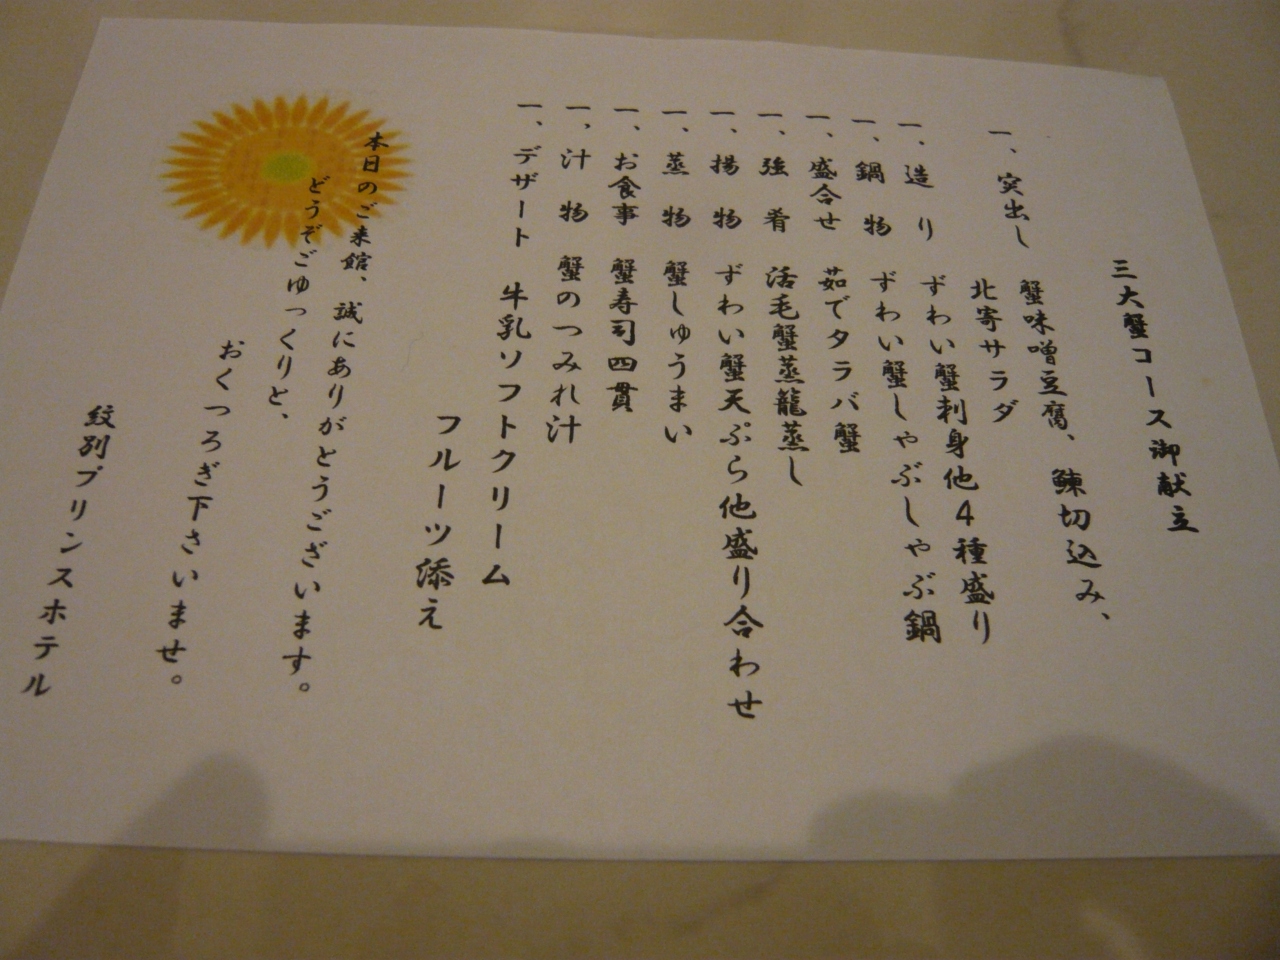 三大蟹コース御献立
一、突出し　蟹味噌豆腐、鰊切込み、
北寄サラダ
一、造　り　ずわい蟹刺身他４種盛り
一、鍋　物　ずわい蟹しゃぶしゃぶ鍋
一、盛合せ　茹でタラバ蟹
一、強　肴　活毛蟹蒸籠蒸し
一、揚　物　ずわい蟹天ぷら他盛り合わせ
一、蒸　物　蟹しゅうまい
一、お食事　蟹寿司四貫
一、汁　物　蟹のつみれ汁
一、デザート　牛乳ソフトクリーム
フルーツ添え
本日のご来館、誠にありがとうございます。
どうぞごゆっくりと、
おくつろぎ下さいませ。
紋別プリンスホテル